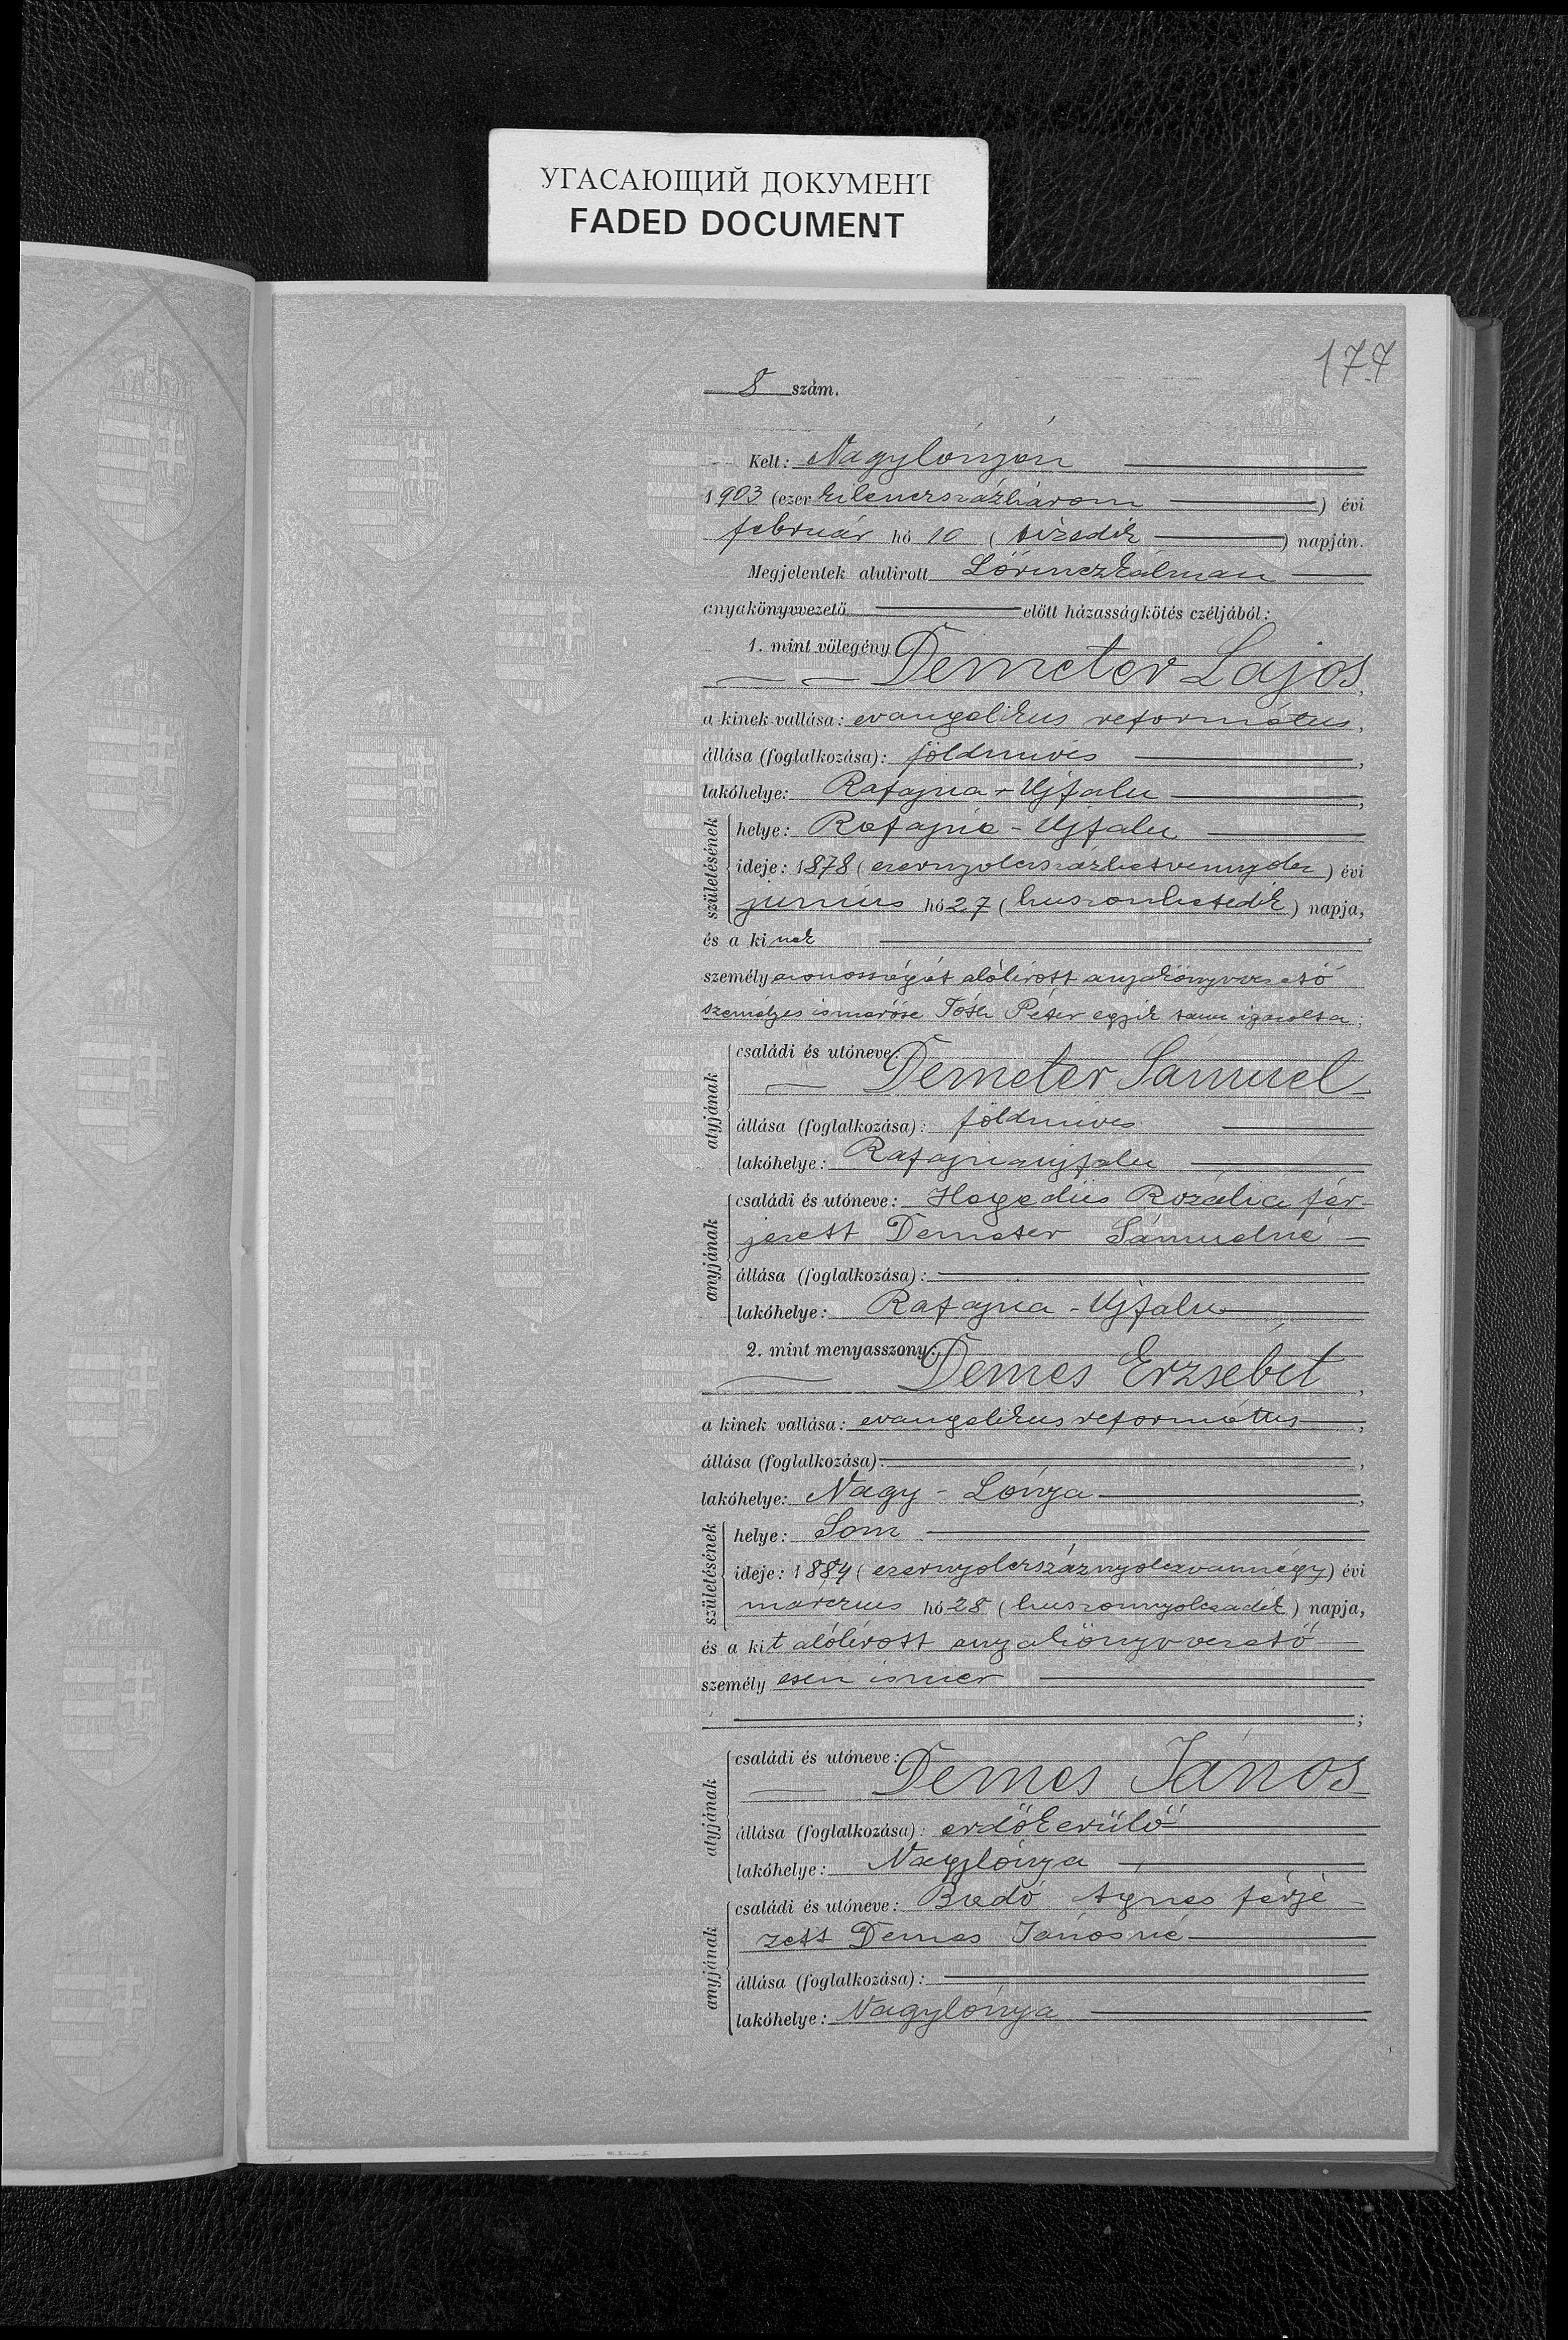 УГАСАЮЩИЙ ДОКУМЕНТ
FADED DOCUMENT
177
8 szám.
Kelt: Nagylónyán
1903 (ezer kilenczszázhárom) évi
február hó 10 (tizedik) napján.
Megjelentek alulirott Lőrincz Kálmán
anyakönyvvezető előtt házasságkötés czéljából:
1. mint vőlegény Demeter Lajos,
a kinek vallása: evangelikus református,
állása (foglalkozása): földmíves,
lakóhelye: Rafajna-Ujfalu,
születésének
helye: Rafajna-Ujfalu
ideje: 1878 (ezernyolczszázhetvennyolcz) évi
junius hó 27 (huszonhetedik) napja,
és a kinek
személyazonosságát alólirott anyakönyvvezető
személyes ismerőse Tóth Péter egyik tanu igazolta;
atyjának
családi és utóneve: Demeter Sámuel
állása (foglalkozása): földmíves
lakóhelye: Rafajnaujfalu
anyjának
családi és utóneve: Hegedüs Rozália fér-
jezett Demeter Sámuelné
állása (foglalkozása):
lakóhelye: Rafajna-Ujfalu
2. mint menyasszony: Demes Erzsébet,
a kinek vallása: evangelikus református,
állása (foglalkozása):,
lakóhelye: Nagy-Lónya,
születésének
helye: Som
ideje: 1884 (ezernyolczszáznyolczvannégy) évi
márczius hó 28 (huszonnyolczadik) napja,
és a kit alólirott anyakönyvvezető
személyesen ismer
;
atyjának
családi és utóneve: Demes János
állása (foglalkozása): erdőkerülő
lakóhelye: Nagylónya
anyjának
családi és utóneve: Ágnes férje
zett Demes Jánosné
állása (foglalkozása):
lakóhelye: Nagylónya